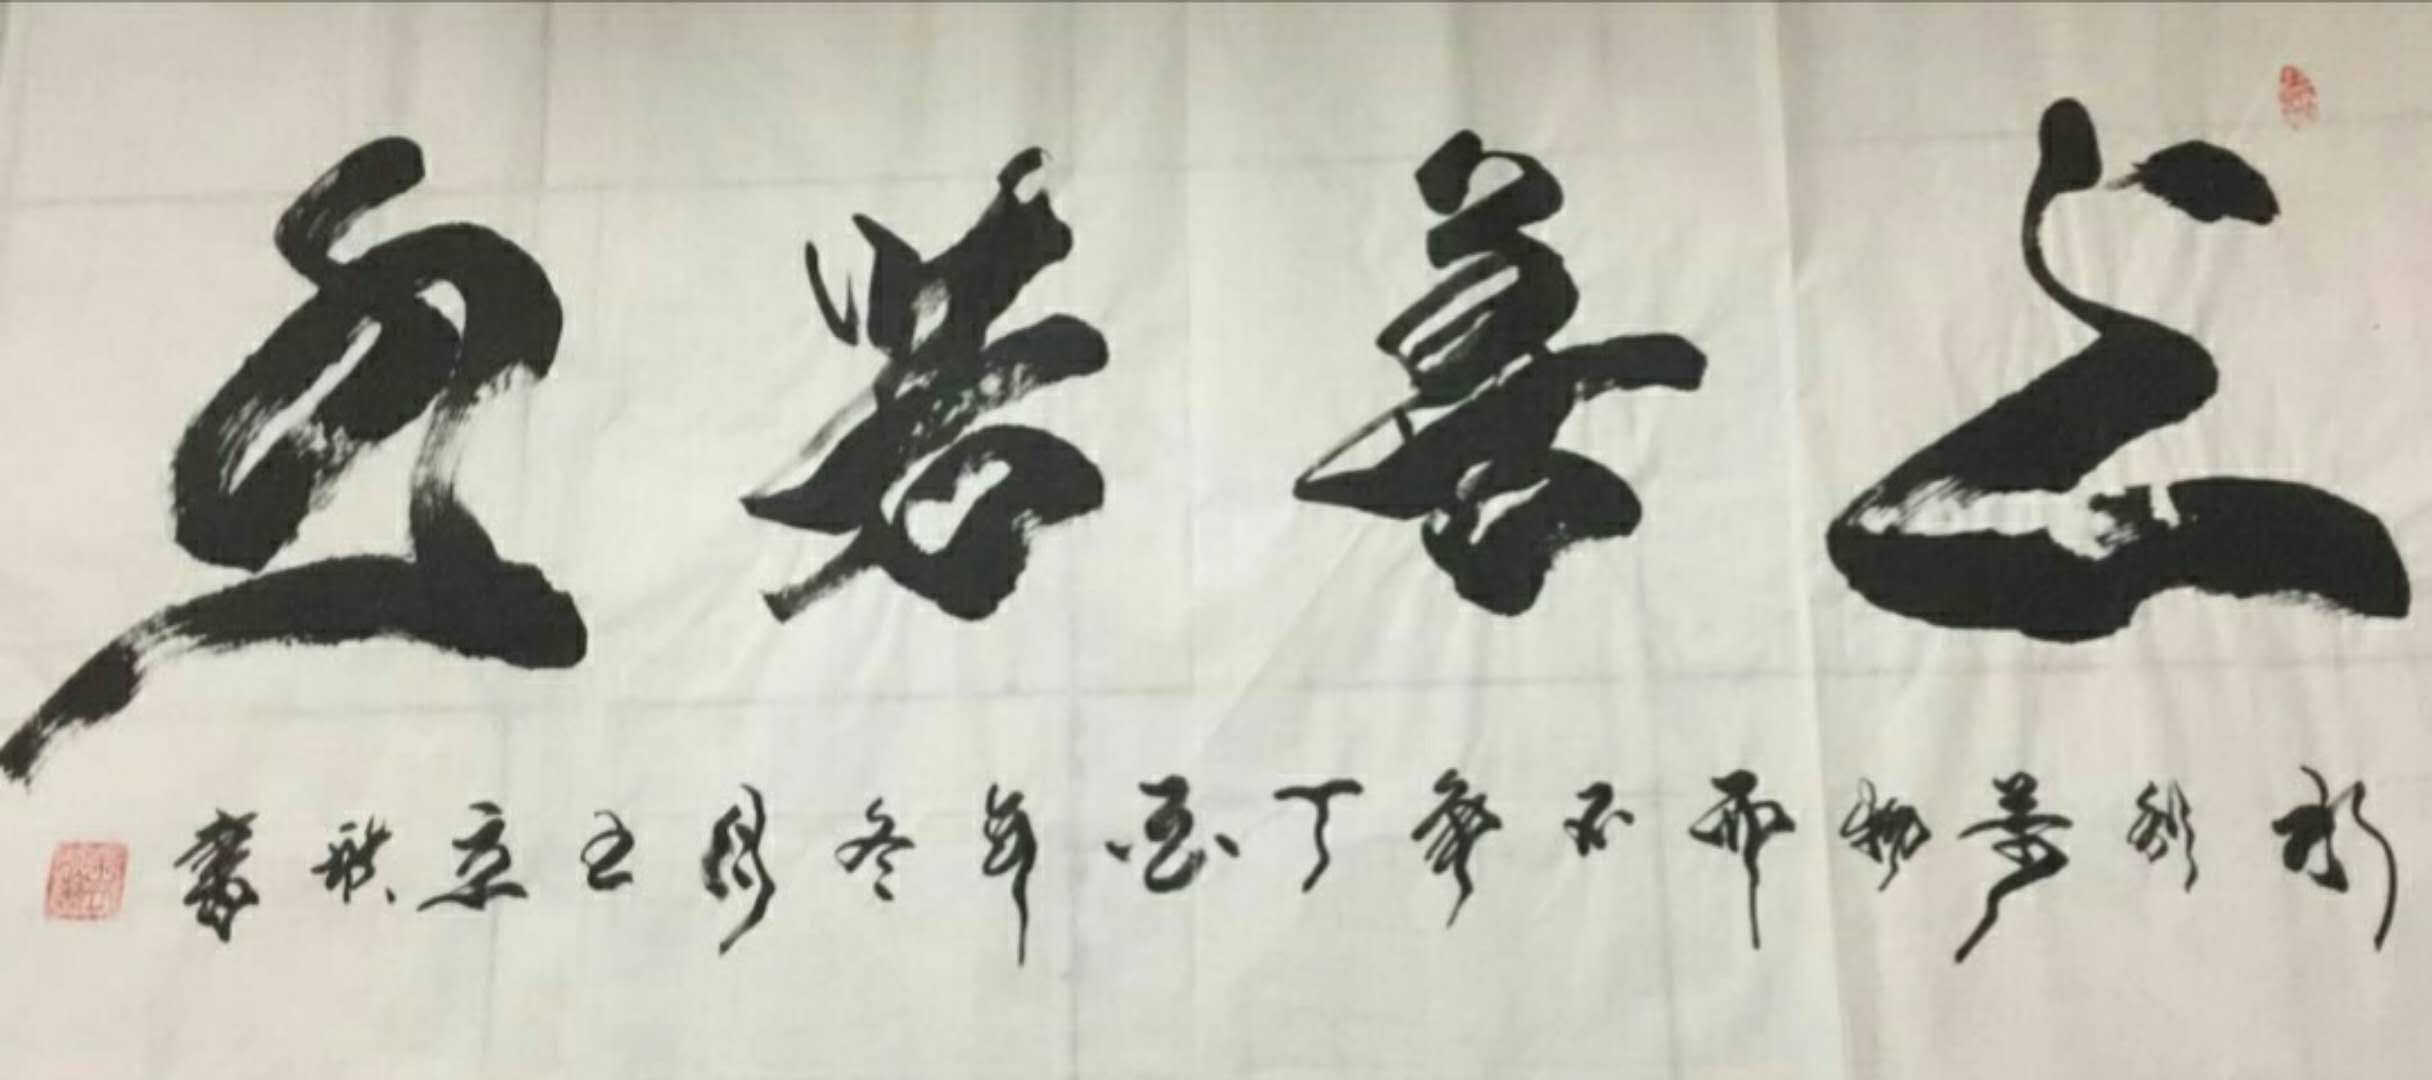 上善若水
水利萬物而不爭丁酉年冬月王京書